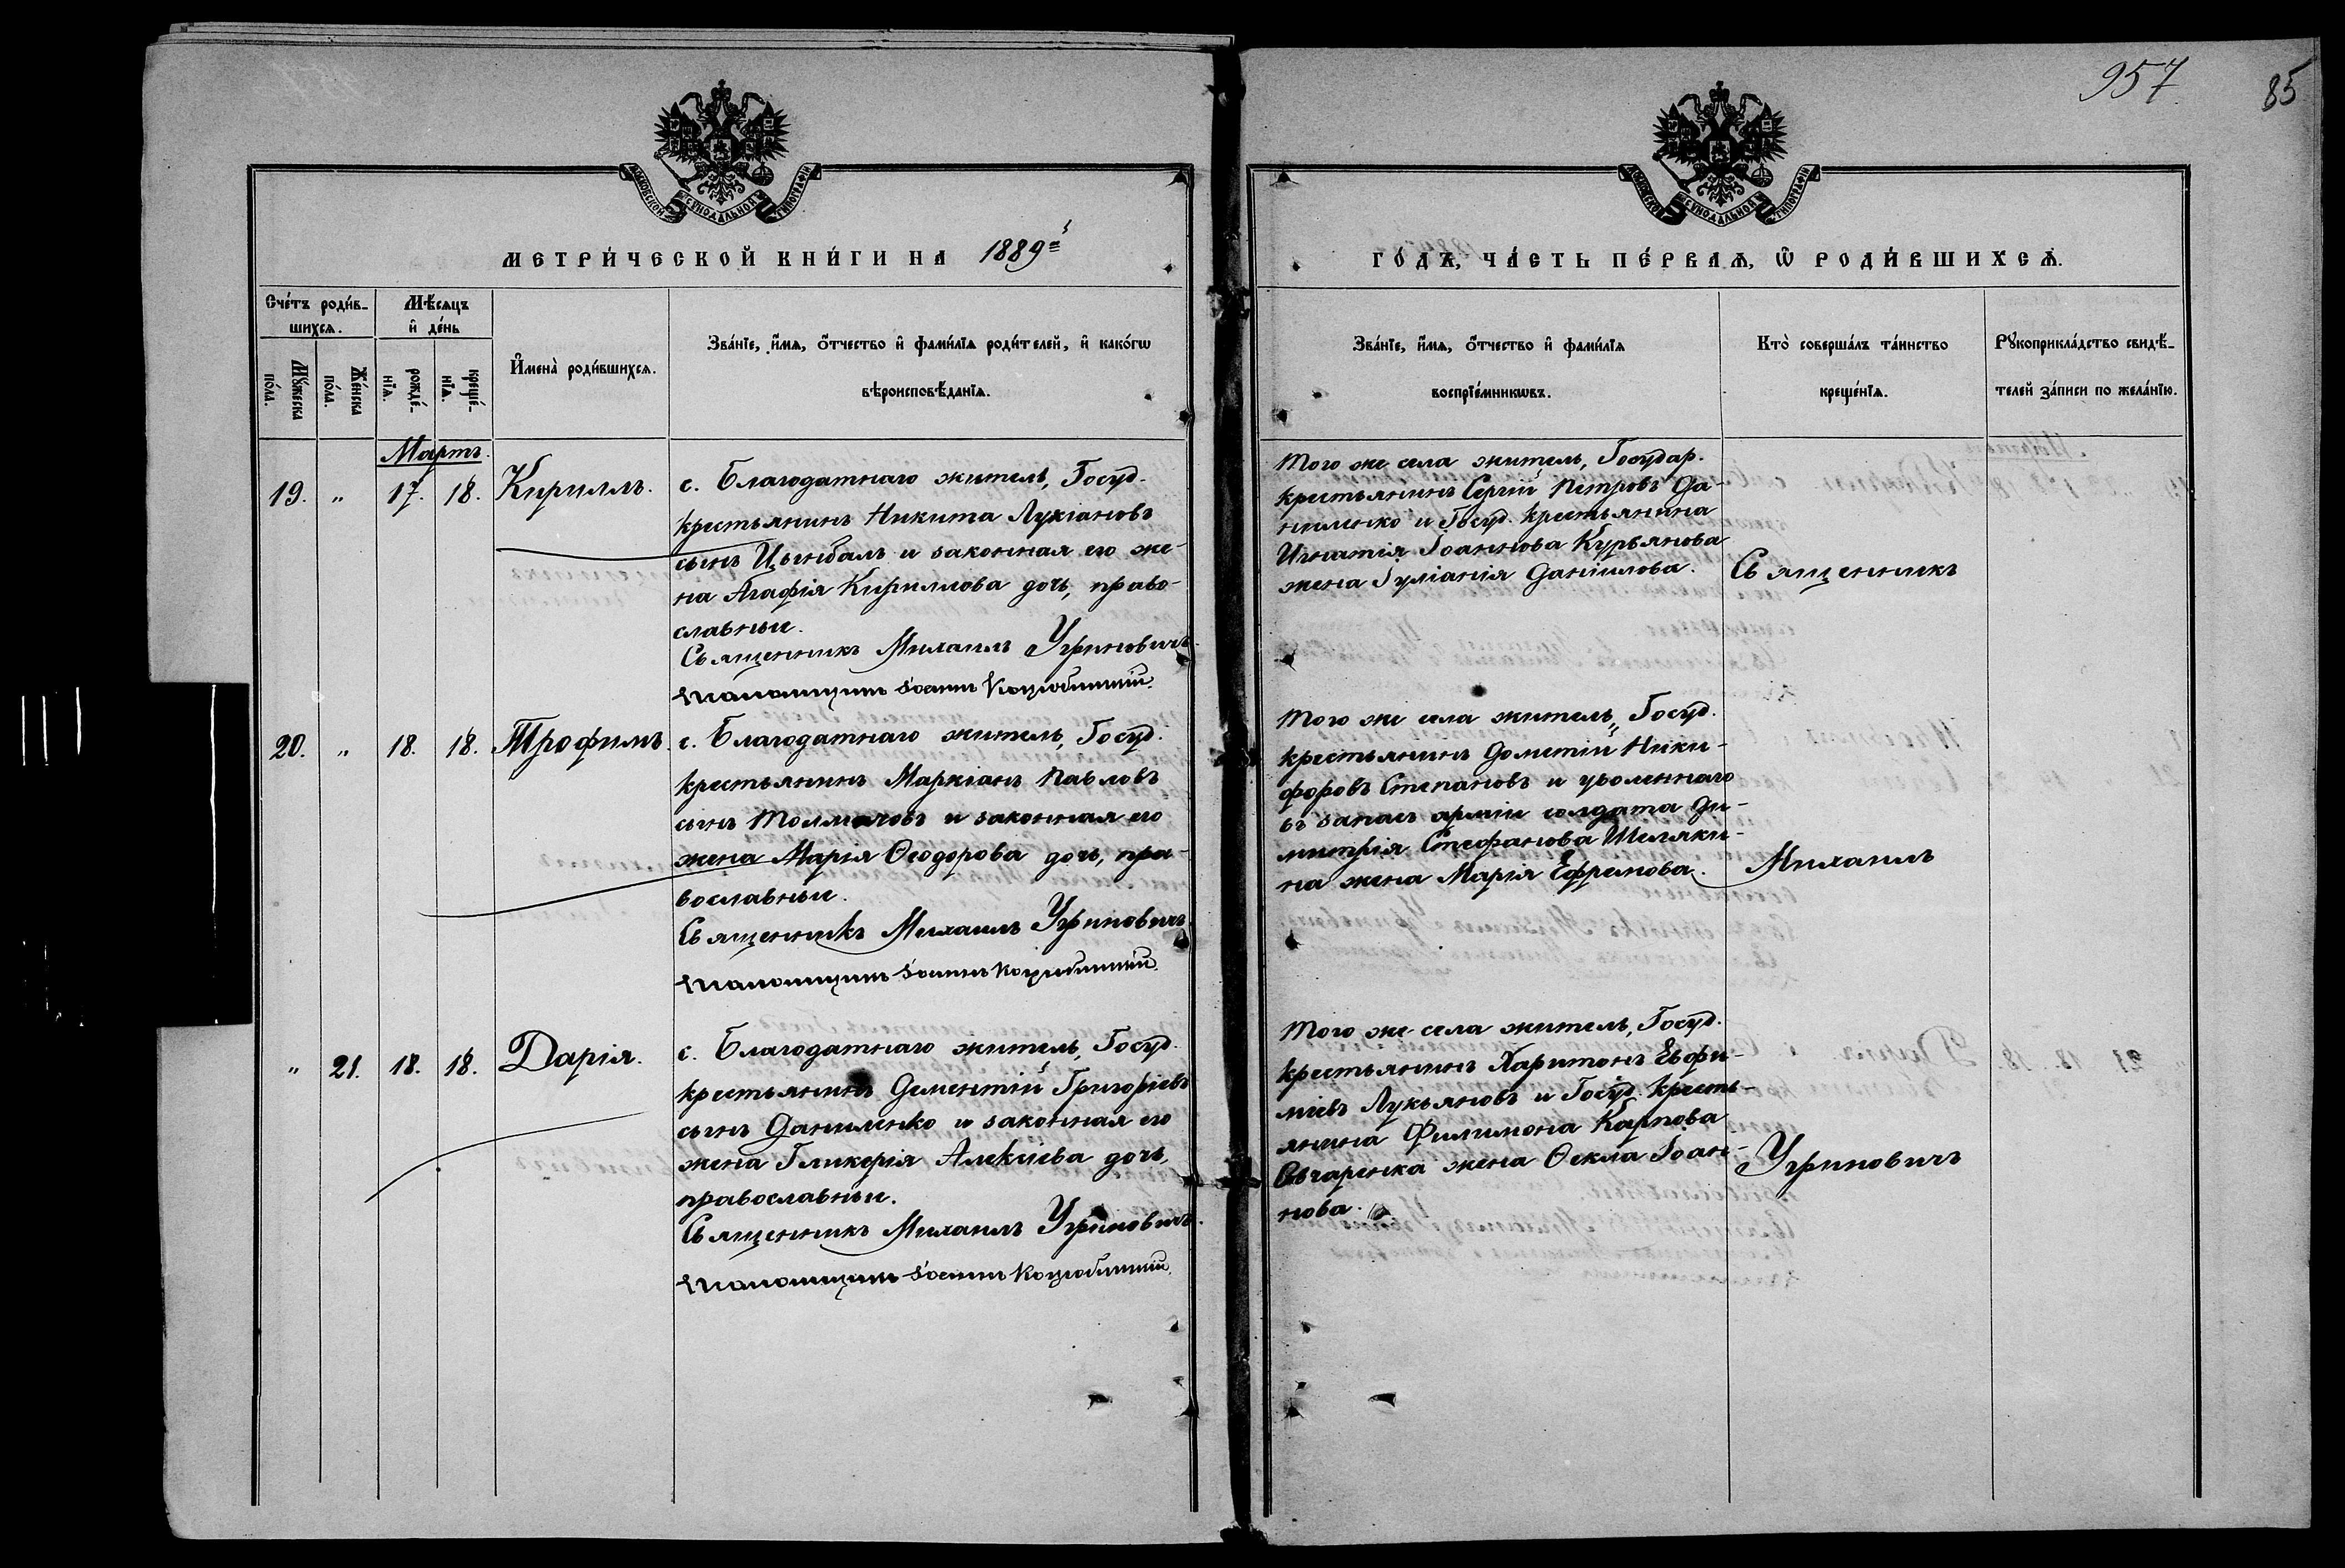 957
85
МОСКОВСКОЙ СУНОДАЛЬНОЙ ТИПОГРАФІИ
МОСКОВСКОЙ СУНОДАЛЬНОЙ ТИПОГРАФІИ
МЕТРИ́ЧЕСКОЙ КНИ́ГИ НА 1889й
ГО́ДЪ, ЧА́СТЬ ПЕ́РВАѦ, Ѽ РОДИ́ВШИХСѦ.
Сче́тъ роди́в-
шихсѧ.
Мѣ́сѧцъ
и҆ де́нь
Мꙋ́жеска
по́ла.
Же́нска
по́ла.
рожде́-
нїѧ.
креще́-
нїѧ.
И҆мена̀ роди́вшихсѧ.
Зва́нїе, и҆́мѧ, ѻ҆́тчество и҆ фами́лїѧ роди́телей, и҆ како́гѡ
вѣроисповѣ́данїѧ.
Зва́нїе, и҆́мѧ, ѻ҆́тчество и҆ фами́лїѧ
воспрїе́мникѡвъ.
Кто̀ соверша́лъ та́инство
креще́нїѧ.
Рꙋкоприкла́дство свидѣ́-
телей за́писи по жела́нїю.
Мартъ.
19. " 17. 18. Кириллъ.
с. Благодатнаго житель, Госуд.
крестьянинъ Никита Лукіановъ
сынъ Цынбалъ и законная его же-
на Агафія Кириллова дочь, право-
славные.
Священникъ Михаилъ Угриновичъ.
Псаломщикъ Іоаннъ Коцюбинскій.
Того же села житель, Государ.
крестьянинъ Сергій Петровъ Да-
ниленко и Госуд. крестьянина
Игнатія Іоаннова Курьянова
жена Іуліанія Даніилова.
Священникъ
20. " 18. 18. Трофимъ.
с. Благодатнаго житель, Госуд.
крестьянинъ Маркіанъ Павловъ
сынъ Толмачовъ и законная его
жена Марія Ѳеодорова дочь, пра-
вославные.
Священникъ Михаилъ Угриновичъ
Псаломщикъ Іоаннъ Коцюбинскій.
Того же села житель, Госуд.
крестьянинъ Дометій Ники-
форовъ Степановъ и уволеннаго
въ запасъ арміи солдата Ди-
митрія Стефанова Шеляки-
на жена Марія Ефремова.
Михаилъ
" 21. 18. 18. Дарія.
с. Благодатнаго житель, Госуд.
крестьянинъ Дементій Григоріевъ
сынъ Даниленко и законная его
жена Гликерія Алексіева дочь,
православные.
Священникъ Михаилъ Угриновичъ.
Псаломщикъ Іоаннъ Коцюбинскій.
Того же села житель, Госуд.
крестьянинъ Харитонъ Евфи-
міевъ Лукьяновъ и Госуд. кресть-
янина Филимона Карпова
Овчаренка жена Ѳекла Іоан-
нова.
Угриновичъ